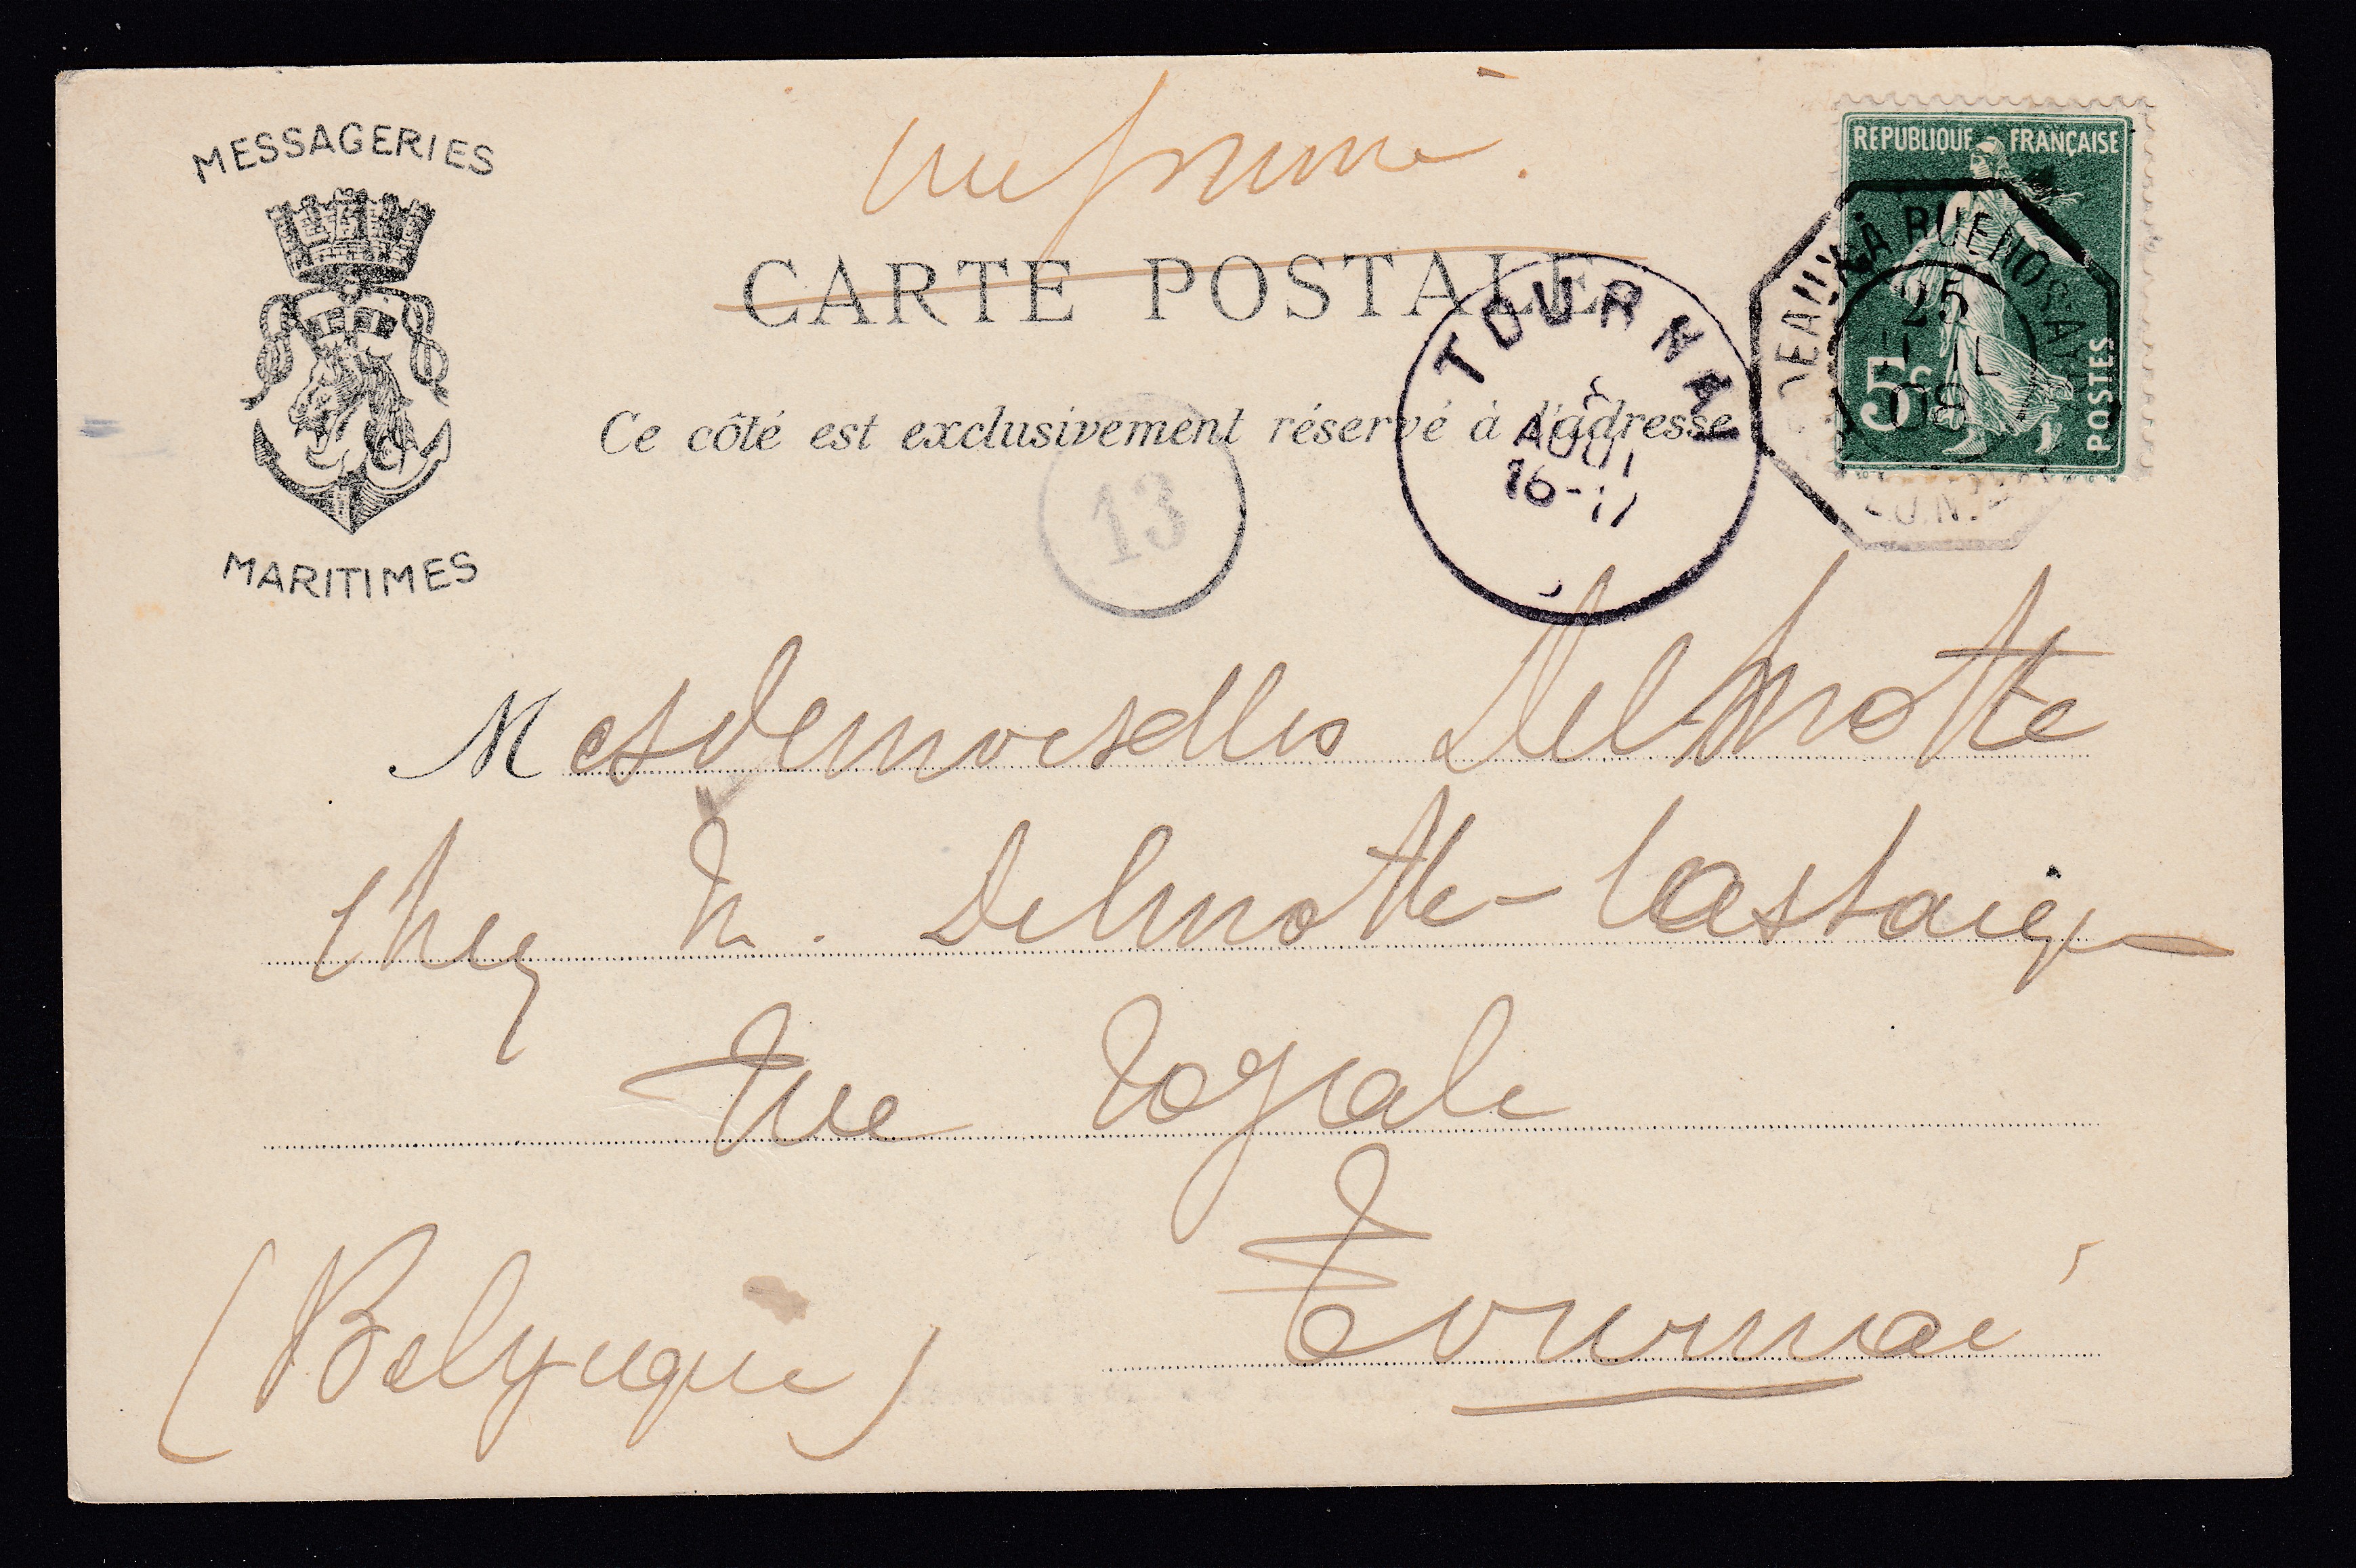 MESSAGERIES
MARITIMES
imprimé.
CARTE POSTALE
Ce côté est exclusivement réservé à l'adresse
REPUBLIQUE FRANÇAISE
5c
POSTES
DEAUX À BUENOS-AY
25
JL
08
TOURNAI
AOUT
16-17
13
Mesdemoiselles Delmotte
Chez M. Delmotte-
Rue Royale
Tournai
(Belgique)